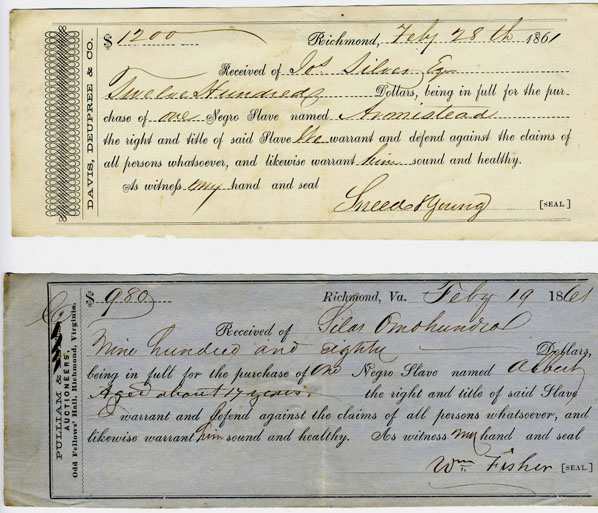 DAVIS, DEUPREE & CO.
$ 1200 Richmond, Feby 28th 1861
Received of Jos Silver Esq
Twelve Hundred Dollars, being in full for the pur-
chase of one Negro Slave named Armistead
the right and title of said Slave We warrant and defend against the claims of
all persons whatsoever, and likewise warrant him sound and healthy.
As witness my hand and seal
Sneed & Young [SEAL.]
PULLIAM &
AUCTIONEERS,
Odd Fellows' Hall, Richmond, Virginia.
$ 980 Richmond, Va. Feby 19 1861
Received of Silas Omohundro
Nine hundred and eighty Dollars,
being in full for the purchase of One Negro Slave named Albert
Aged about 17 years. the right and title of said Slave
warrant and defend against the claims of all persons whatsoever, and
likewise warrant him sound and healthy. As witness my hand and seal
Wm Fisher [SEAL.]